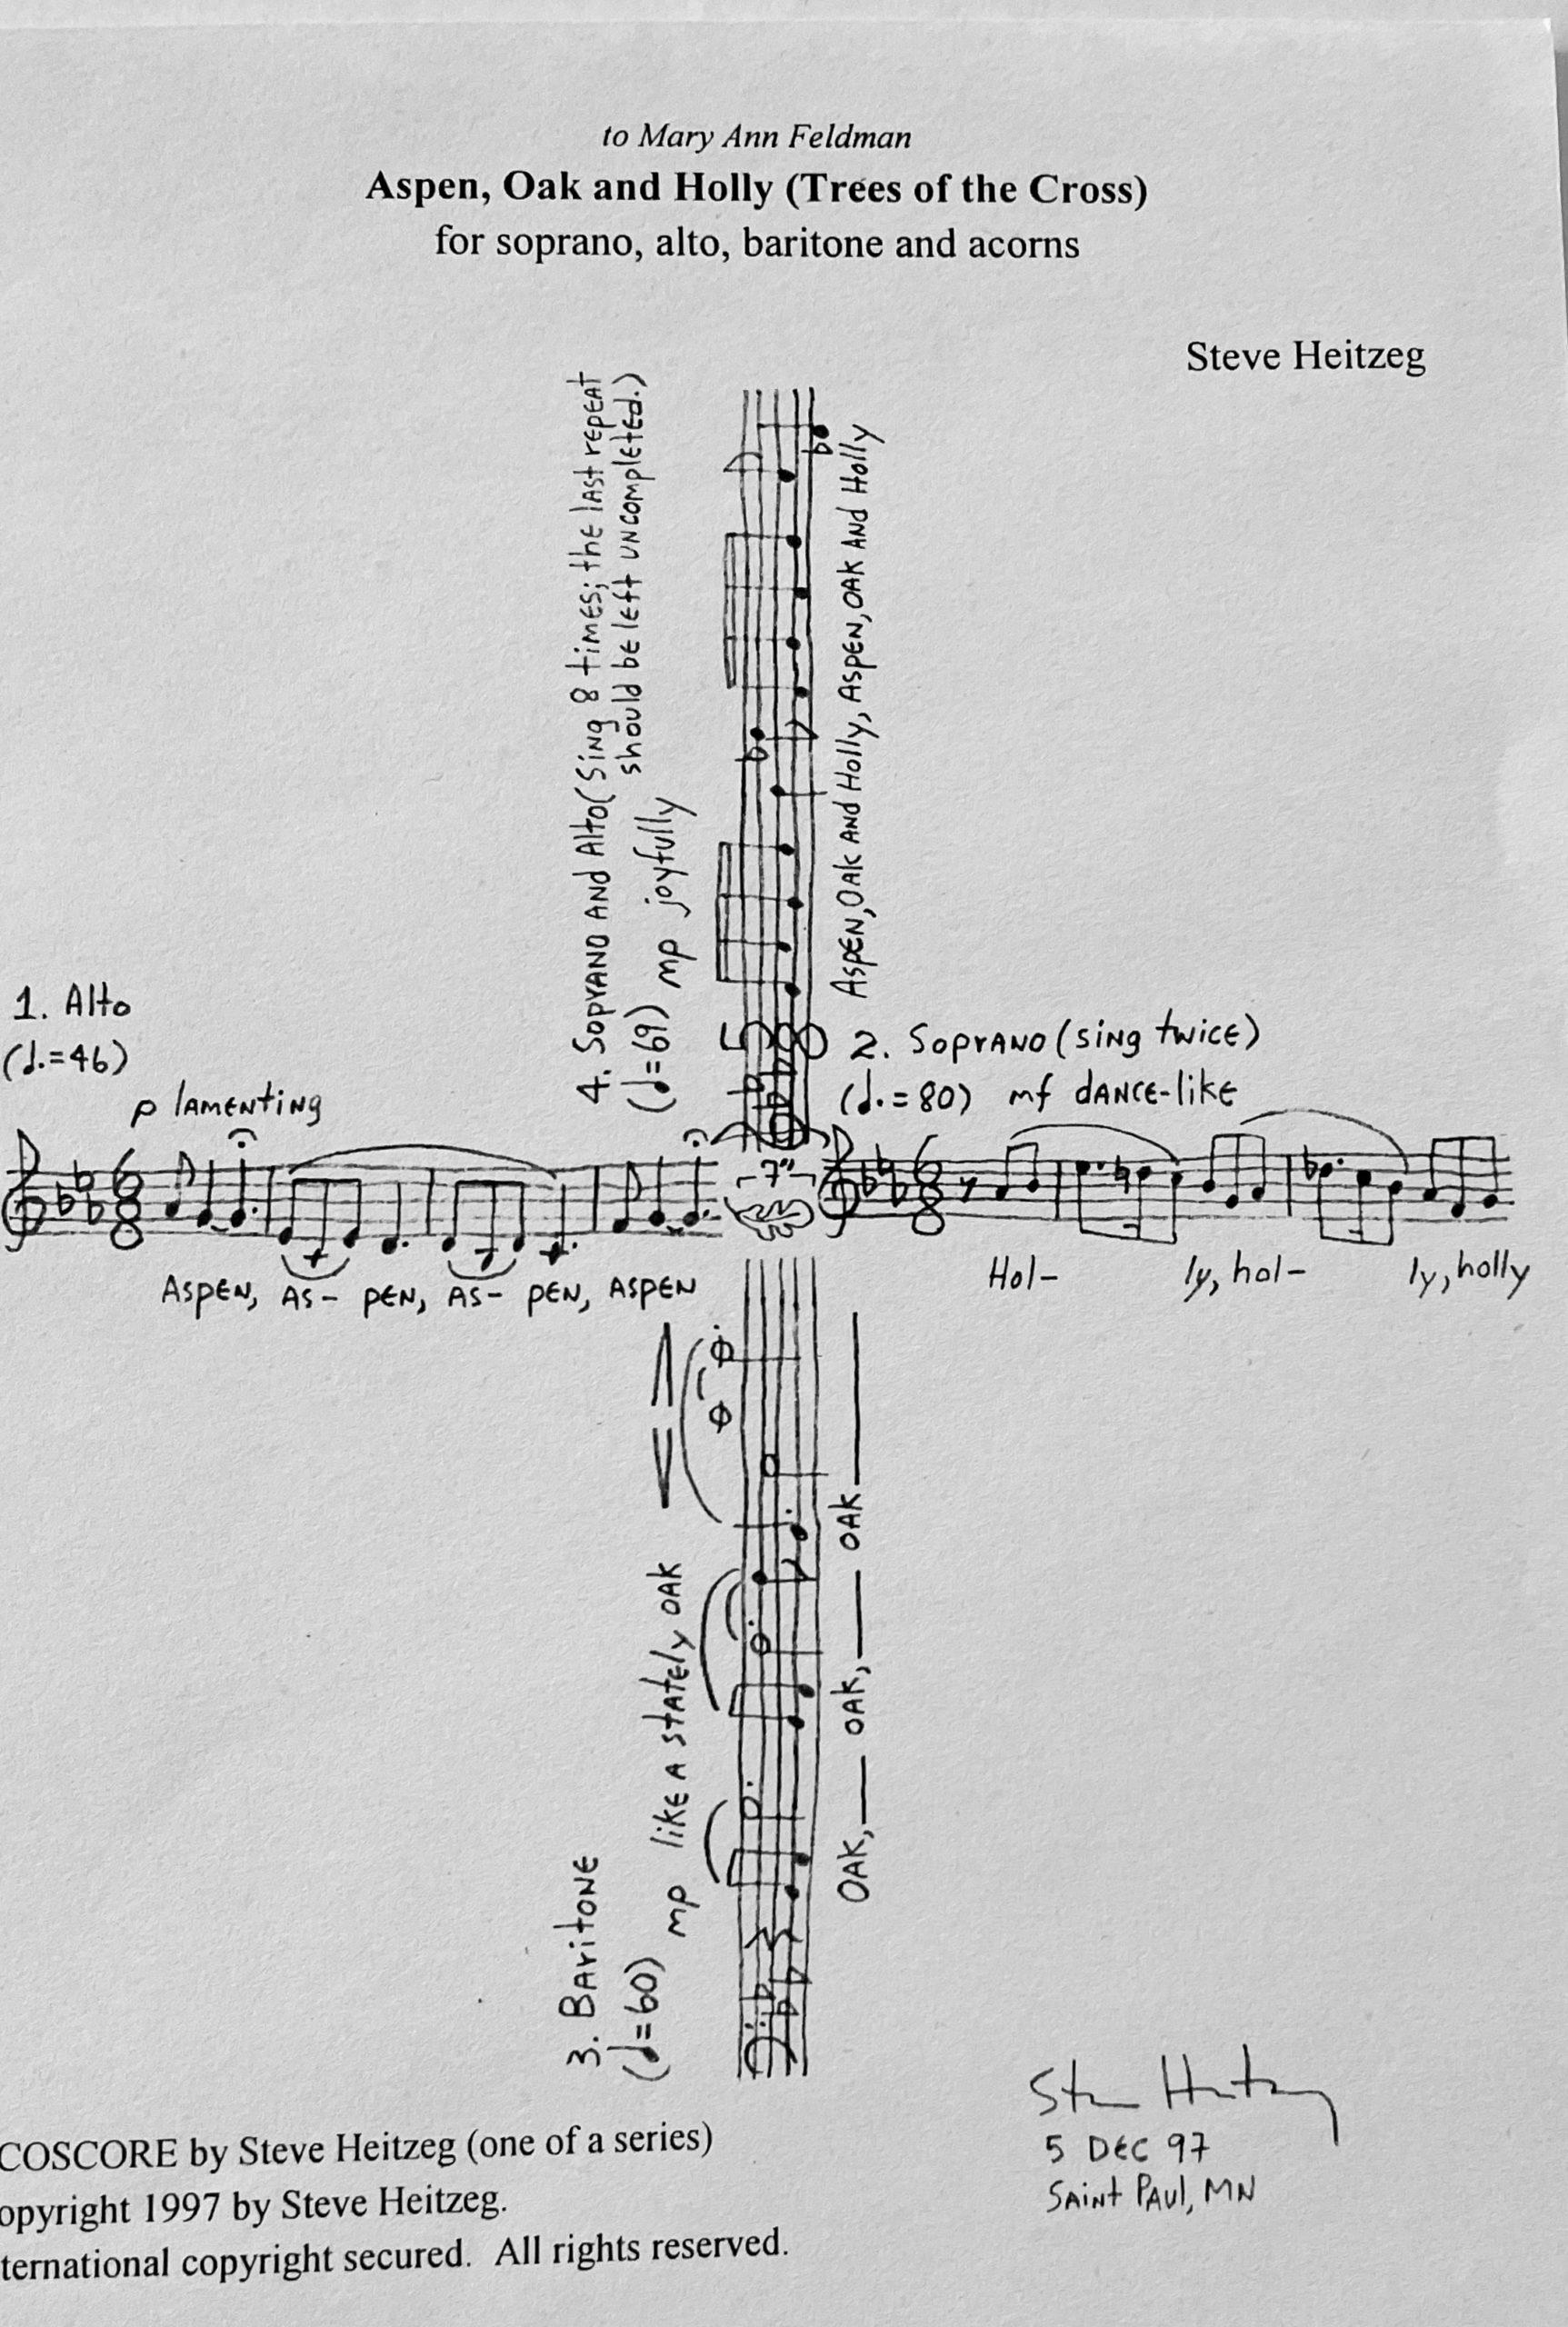 to Mary Ann Feldman
Aspen, Oak and Holly (Trees of the Cross)
for soprano, alto, baritone and acorns
Steve Heitzeg
1. Alto
(♩.=46)
p lamenting
6
8
Aspen, As- pen, As- pen, Aspen
7"
2. Soprano (sing twice)
(♩.=80) mf dance-like
6
8
Hol- ly, hol- ly, holly
3. Baritone
(♩=60)
mp like a stately oak
Oak, oak, oak
4. Soprano and Alto (Sing 8 times; the last repeat
should be left uncompleted.)
(♩=69) mp joyfully
5
8
Aspen, Oak and Holly, Aspen, Oak and Holly
COSCORE by Steve Heitzeg (one of a series)
opyright 1997 by Steve Heitzeg.
ternational copyright secured. All rights reserved.
5 Dec 97
Saint Paul, MN